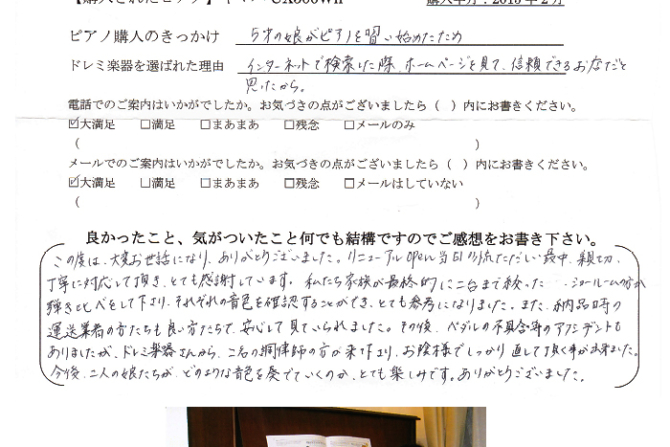 ピアノ購入のきっかけ 5才の娘がピアノを習い始めたため
ドレミ楽器を選ばれた理由 インターネットで検索した際、ホームページを見て、信頼できるお店だと
思ったから。
電話でのご案内はいかがでしたか。お気づきの点がございましたら（ ）内にお書きください。
☑大満足 □満足 □まあまあ □残念 □メールのみ
（ ）
メールでのご案内はいかがでしたか。お気づきの点がございましたら（ ）内にお書きください。
☑大満足 □満足 □まあまあ □残念 □メールはしていない
（ ）
良かったこと、気がついたこと何でも結構ですのでご感想をお書き下さい。
この度は、大変お世話になり、ありがとうございました。リニューアルopen当日の
丁寧に対応して頂き、とても感謝しています。私たち家族が最終的に二台まで絞った ショールームの方が
弾き比べをして下り、それぞれの音色を確認することができ、とても参考になりました。また、納品時の
運送業者の方たちも良い方たちで、安心して見ていられました。その後、ペダルの不具合等のアクシデントも
ありましたが、ドレミ楽器さんから、二名の調律師の方が来て下り、お陰様でしっかり直して頂く事が出来ました。
今後、二人の娘たちが、どのような音色を奏でていくのか、とても楽しみです。ありがとうございました。